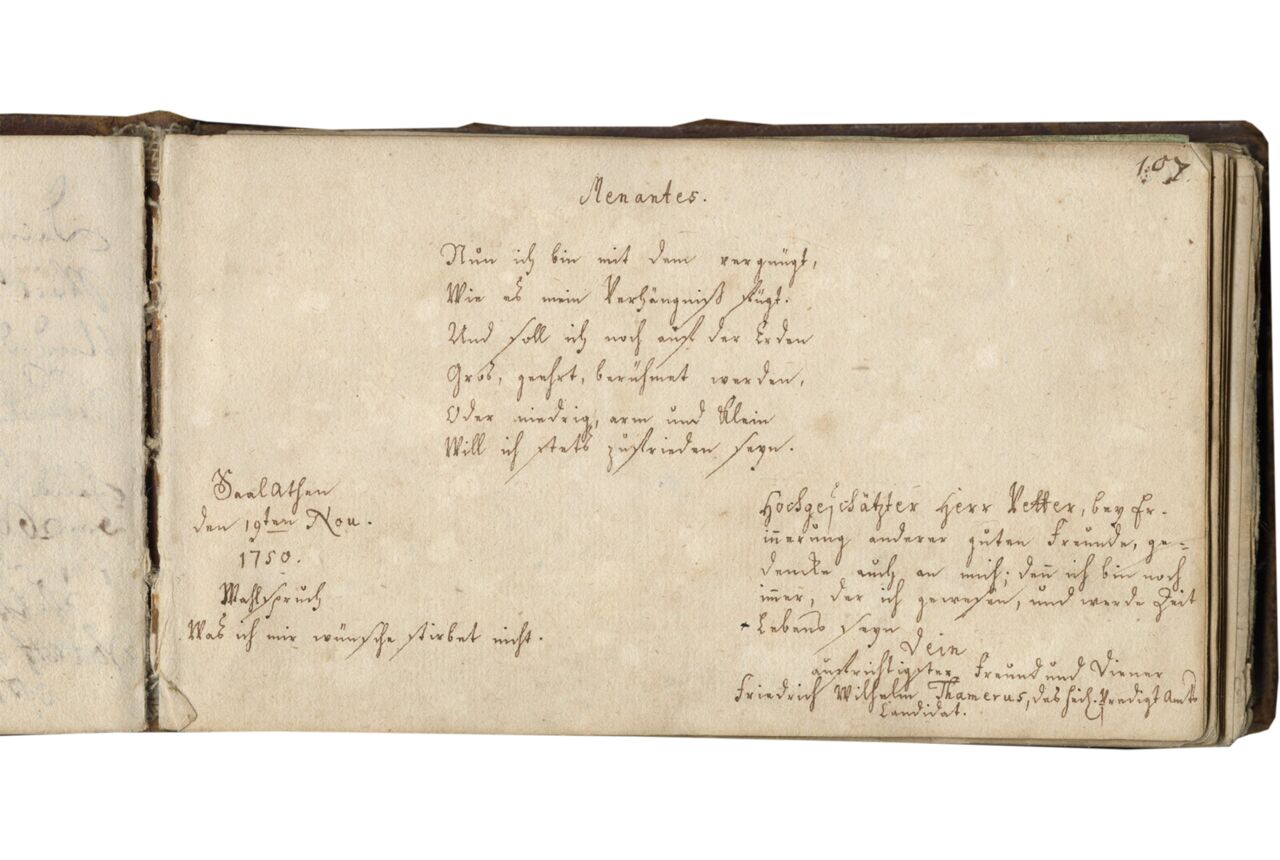 107.
Menantes.
Nun ich bin mit dem vergnügt,
Wie es mein Verhängniß fügt.
Und soll ich noch auf der Erden
Gros, geehrt, berühmet werden,
Oder niedrig, arm und Klein
Will ich stets zufrieden seyn.
SaalAthen
den 19ten Nov.
1750.
Wahlspruch
Was ich mir wünsche stirbet nicht.
Hochgeschätzter Herr Vetter, bey Er-
in̄erung anderer guten Freunde, ge-
dencke auch an mich; den̄ ich bin noch
im̄er, der ich gewesen, und werde Zeit
Lebens seyn
Dein
aufrichtigster Freund und Diener
Friedrich Wilhelm Thamerus, des heil. Predigt Amts
Candidat.